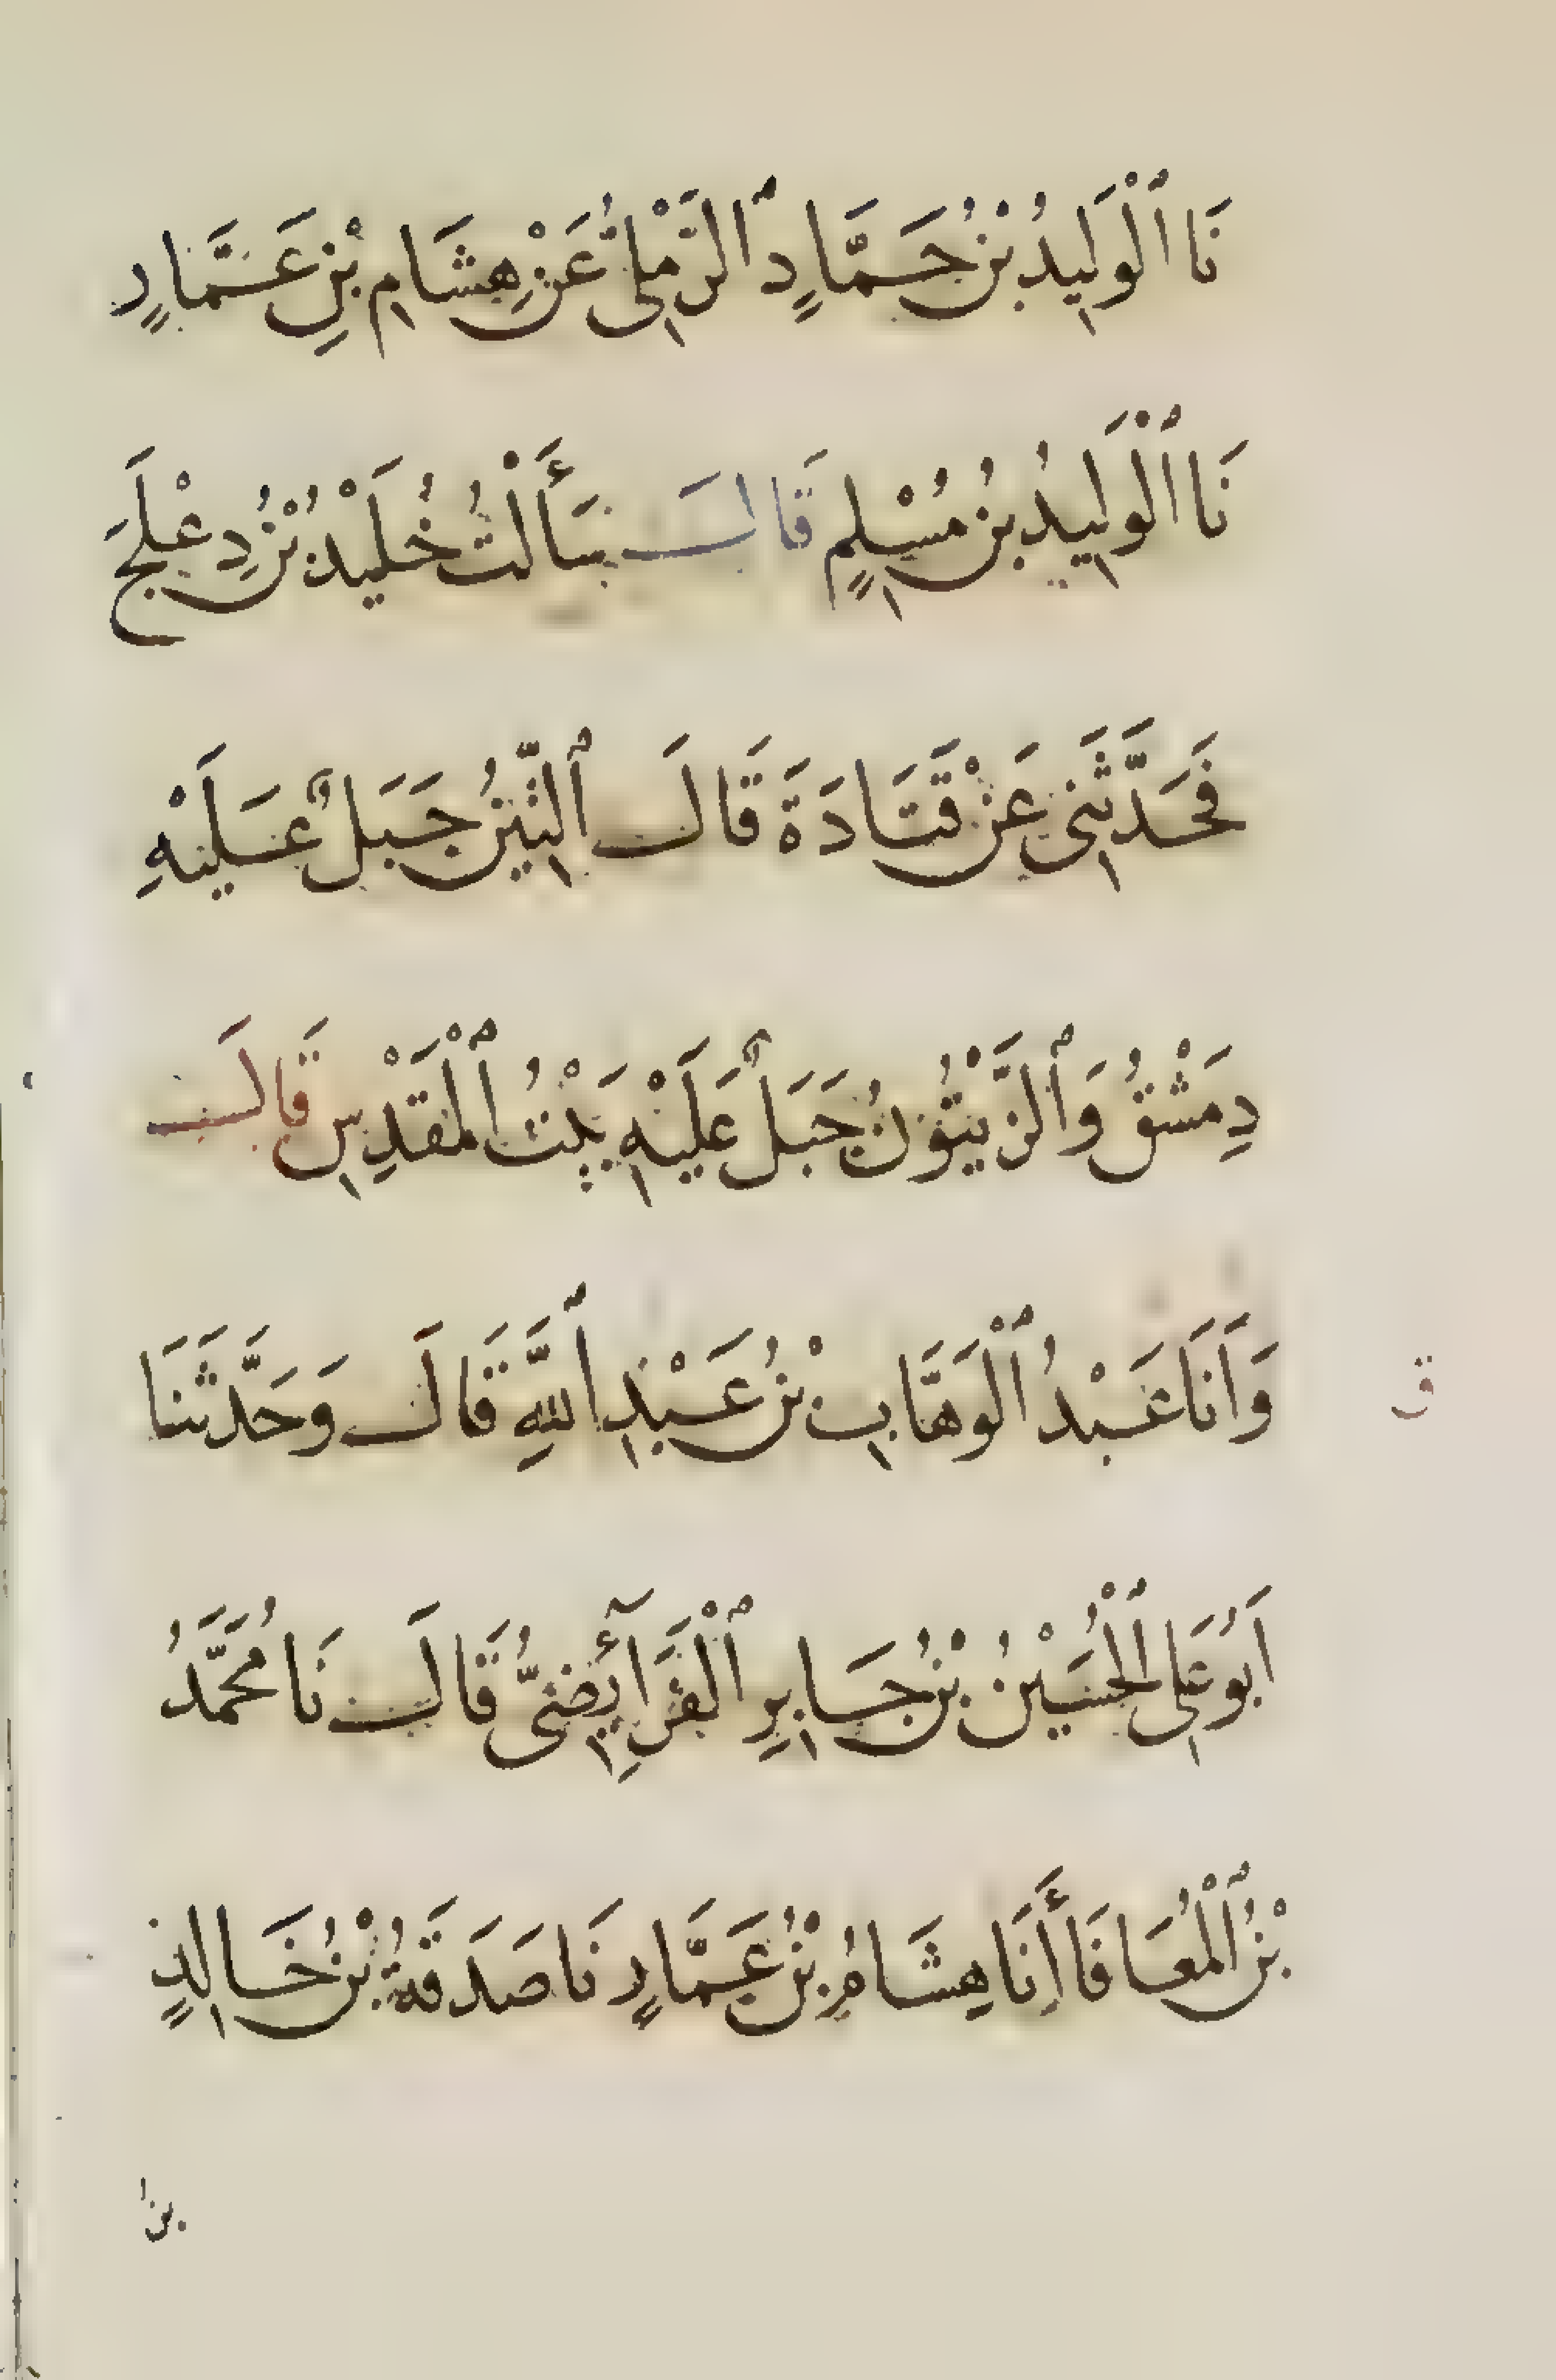 نَا ٱلْوَلِيدُ بْنُ حَمَّادٍ ٱلرَّمْلِىُّ عَنْ هِشَامِ بْنِ عَمَّارٍ
نَا ٱلْوَلِيدُ بْنُ مُسْلِمٍ قَالَ سَأَلْتُ خُلَيْدُ بْنُ دِعْلَجَ
فَحَدَّثَنِى عَنْ قَتَادَةَ قَالَ ٱلتِّينُ جَبَلٌ عَلَيْهِ
دِمَشْقُ وَٱلزَّيْتُوْنُ جَبَلٌ عَلَيْهِ بَيْتُ ٱلْمَقْدِسِ قَالَ
وَاَنَا عَبْدُ ٱلْوَهَّابِ بْنُ عَبْدِ ٱللَّهِ قَالَ وَحَدَّثَنَا
ق
اَبُو عَلِى ٱلْحُسَيْنُ بْنُ جَابِرِ ٱلْفَرَآئِضِىُّ قَالَ نَا مُحَمَّدُ
بْنُ ٱلْمُعَافَا أَنَا هِشَامُ بْنُ عَمَّارٍ نَا صَدَقَةُ بْنُ خَالِدٍ
بن